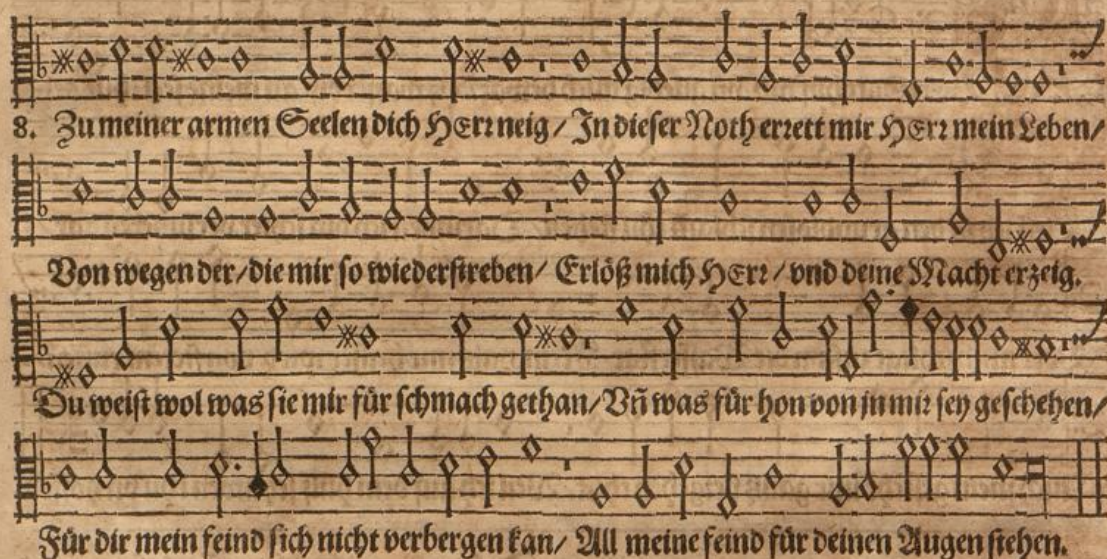 8. Zu meiner armen Seelen dich HErr neig / In dieser Noth errett mir HErr mein Leben/
Von wegen der/ die mir so wiederstreben/ Erlöß mich HErr / vnd deine Macht erzeig.
Du weist wol was sie mir für schmach gethan/ Vñ was für hon von jn mir sey geschehen/
Für dir mein feind sich nicht verbergen kan/ All meine feind für deinen Augen stehen.